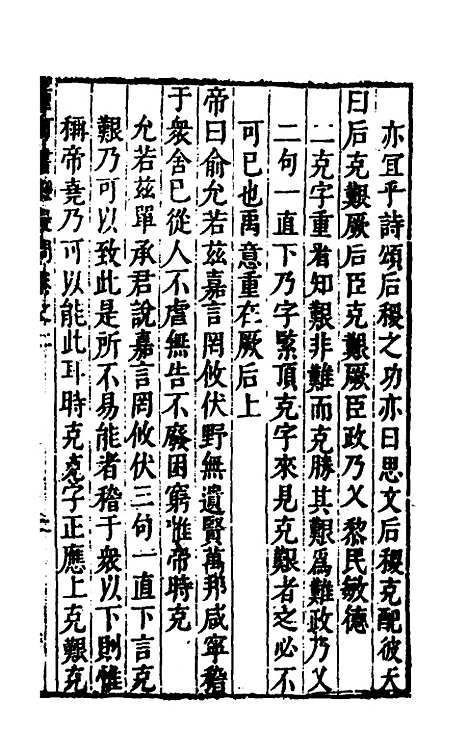 亦宜乎詩頌后稷之功亦曰思文后稷克配彼天
曰后克艱厥后臣克艱厥臣政乃乂黎民敏德
二克字重看知艱非難而克勝其艱爲難政乃乂
二句一直下乃字緊頂克字來見克艱者之必不
可已也禹意重在厥后上
帝曰俞允若玆嘉言罔攸伏野無遺賢萬邦咸寧稽
于衆舍已從人不虐無告不廢困窮惟帝時克
允若玆單承君說嘉言罔攸伏三句一直下言克
艱乃可以致此是所不易能者稽于衆以下則惟
稱帝堯乃可以能此耳時克克字正應上克艱克